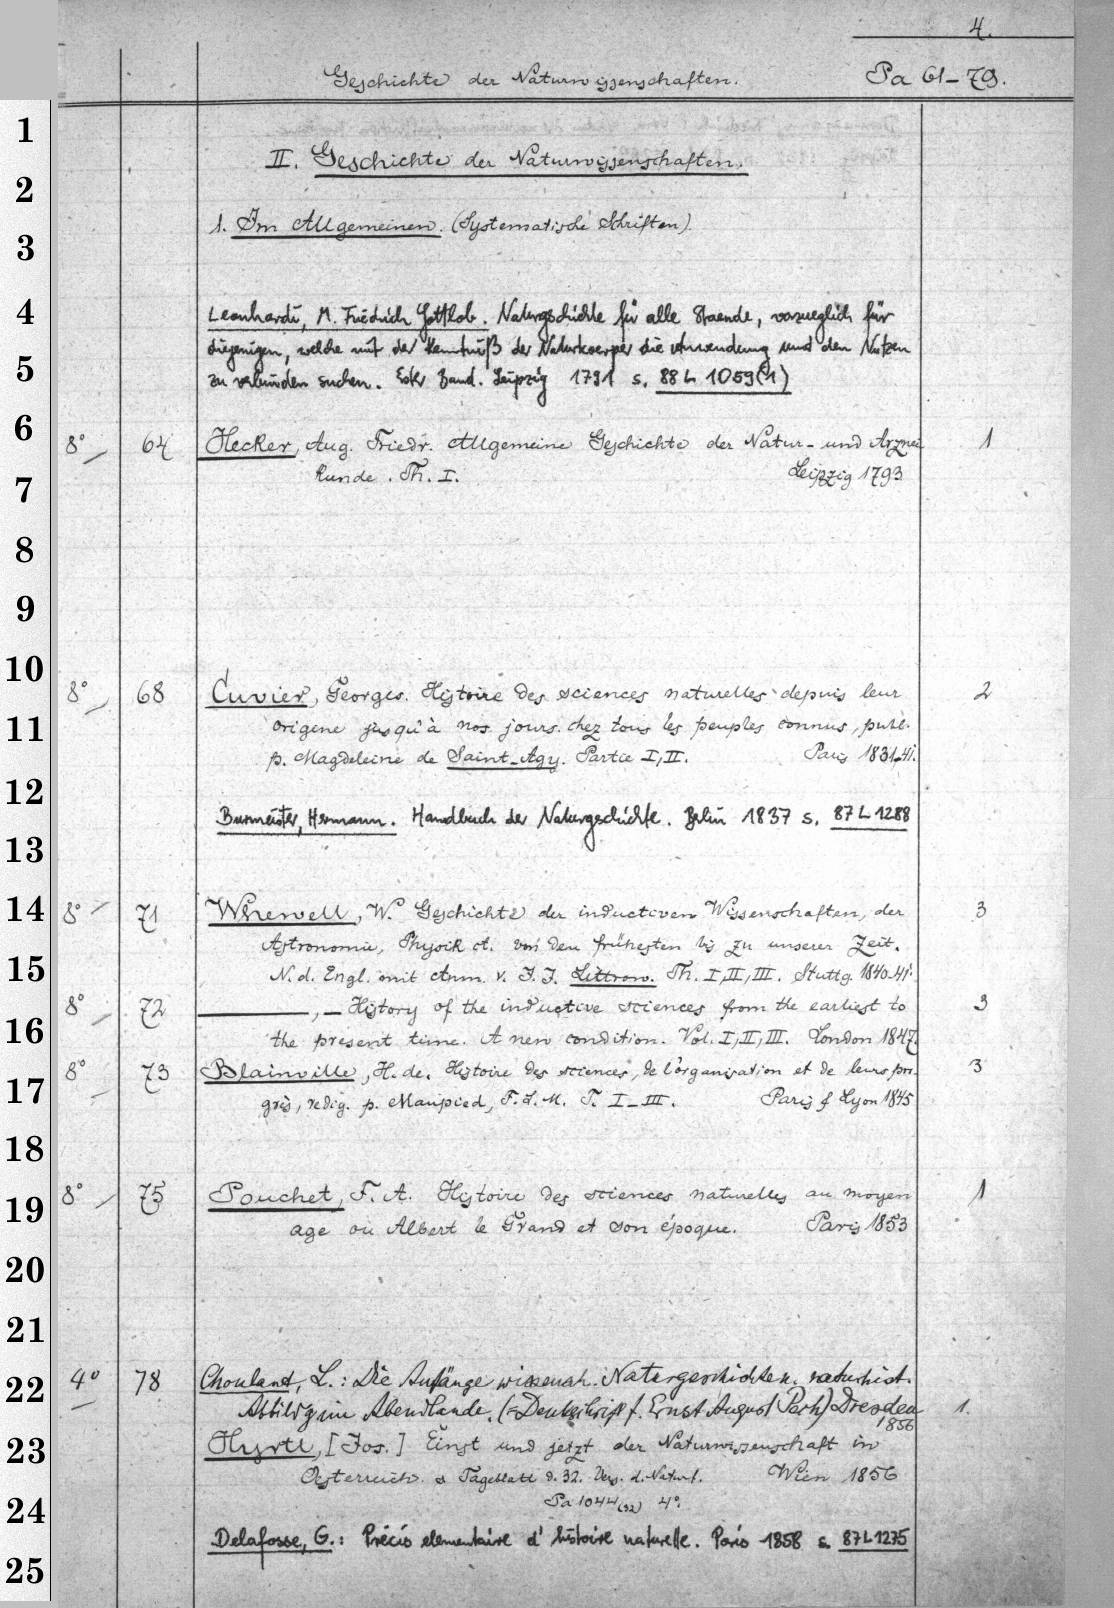 4.
Geschichte der Naturwissenschaften. Pa 61-79.
II. Geschichte der Naturwissenschaften.
1. Im Allgemeinen. (Systematische Schriften).
Leonhardi, M. Friedrich Gottlob. Naturgeschichte für alle Staende, vorzueglich für
diejenigen, welche mit der Kenntniß der Naturkoerper die Anwendung und den Nutzen
zu verbinden suchen. Erster Band. Leipzig 1791 s. 88 L 1059(1)
8° 64 Hecker, Aug. Friedr. Allgemeine Geschichte der Natur- und Arznei 1
kunde. Th. I. Leipzig 1793
8° 68 Cuvier, Georges. Histoire des sciences naturelles depuis leur 2
origine jusqu'à nos jours chez tous les peuples connus, publ.
p. Magdeleine de Saint-Agy. Partie I, II. Paris 1831-41.
Burmeister, Hermann. Handbuch der Naturgeschichte. Berlin 1837 s. 87 L 1288
8° 71 Whewell, W. Geschichte der inductiven Wissenschaften, der 3
Astronomie, Physik etc. von den frühesten bis zu unserer Zeit.
N. d. Engl. mit Anm. v. J. J. Littrow. Th. I, II, III. Stuttg. 1840-41.
8° 72 ———, — History of the inductive sciences from the earliest to 3
the present time. A new condition. Vol. I, II, III. London 1847.
8° 73 Blainville, H. de. Histoire des sciences, de l'organisation et de leurs pro- 3
grès, redig. p. Maupied, F. L. M. T. I-III. Paris & Lyon 1845
8° 75 Pouchet, F. A. Histoire des sciences naturelles au moyen 1
age ou Albert le Grand et son époque. Paris 1853
4° 78 Choulant, L.: Die Anfänge wissensch. Naturgeschichte u. naturhist.
Abbildg im Abendlande. (= Denkschrift f. Ernst August Pech) Dresden 1.
1856
Hyrtl, [Jos.] Einst und jetzt der Naturwissenschaft in
Oesterreich. Tageblatt d. 32. Vers. d. Naturf. Wien 1856
Pa 1044 (32) 4°.
Delafosse, G.: Précis elementaire d'histoire naturelle. Paris 1858 s. 87 L 1275
1
2
3
4
5
6
7
8
9
10
11
12
13
14
15
16
17
18
19
20
21
22
23
24
25